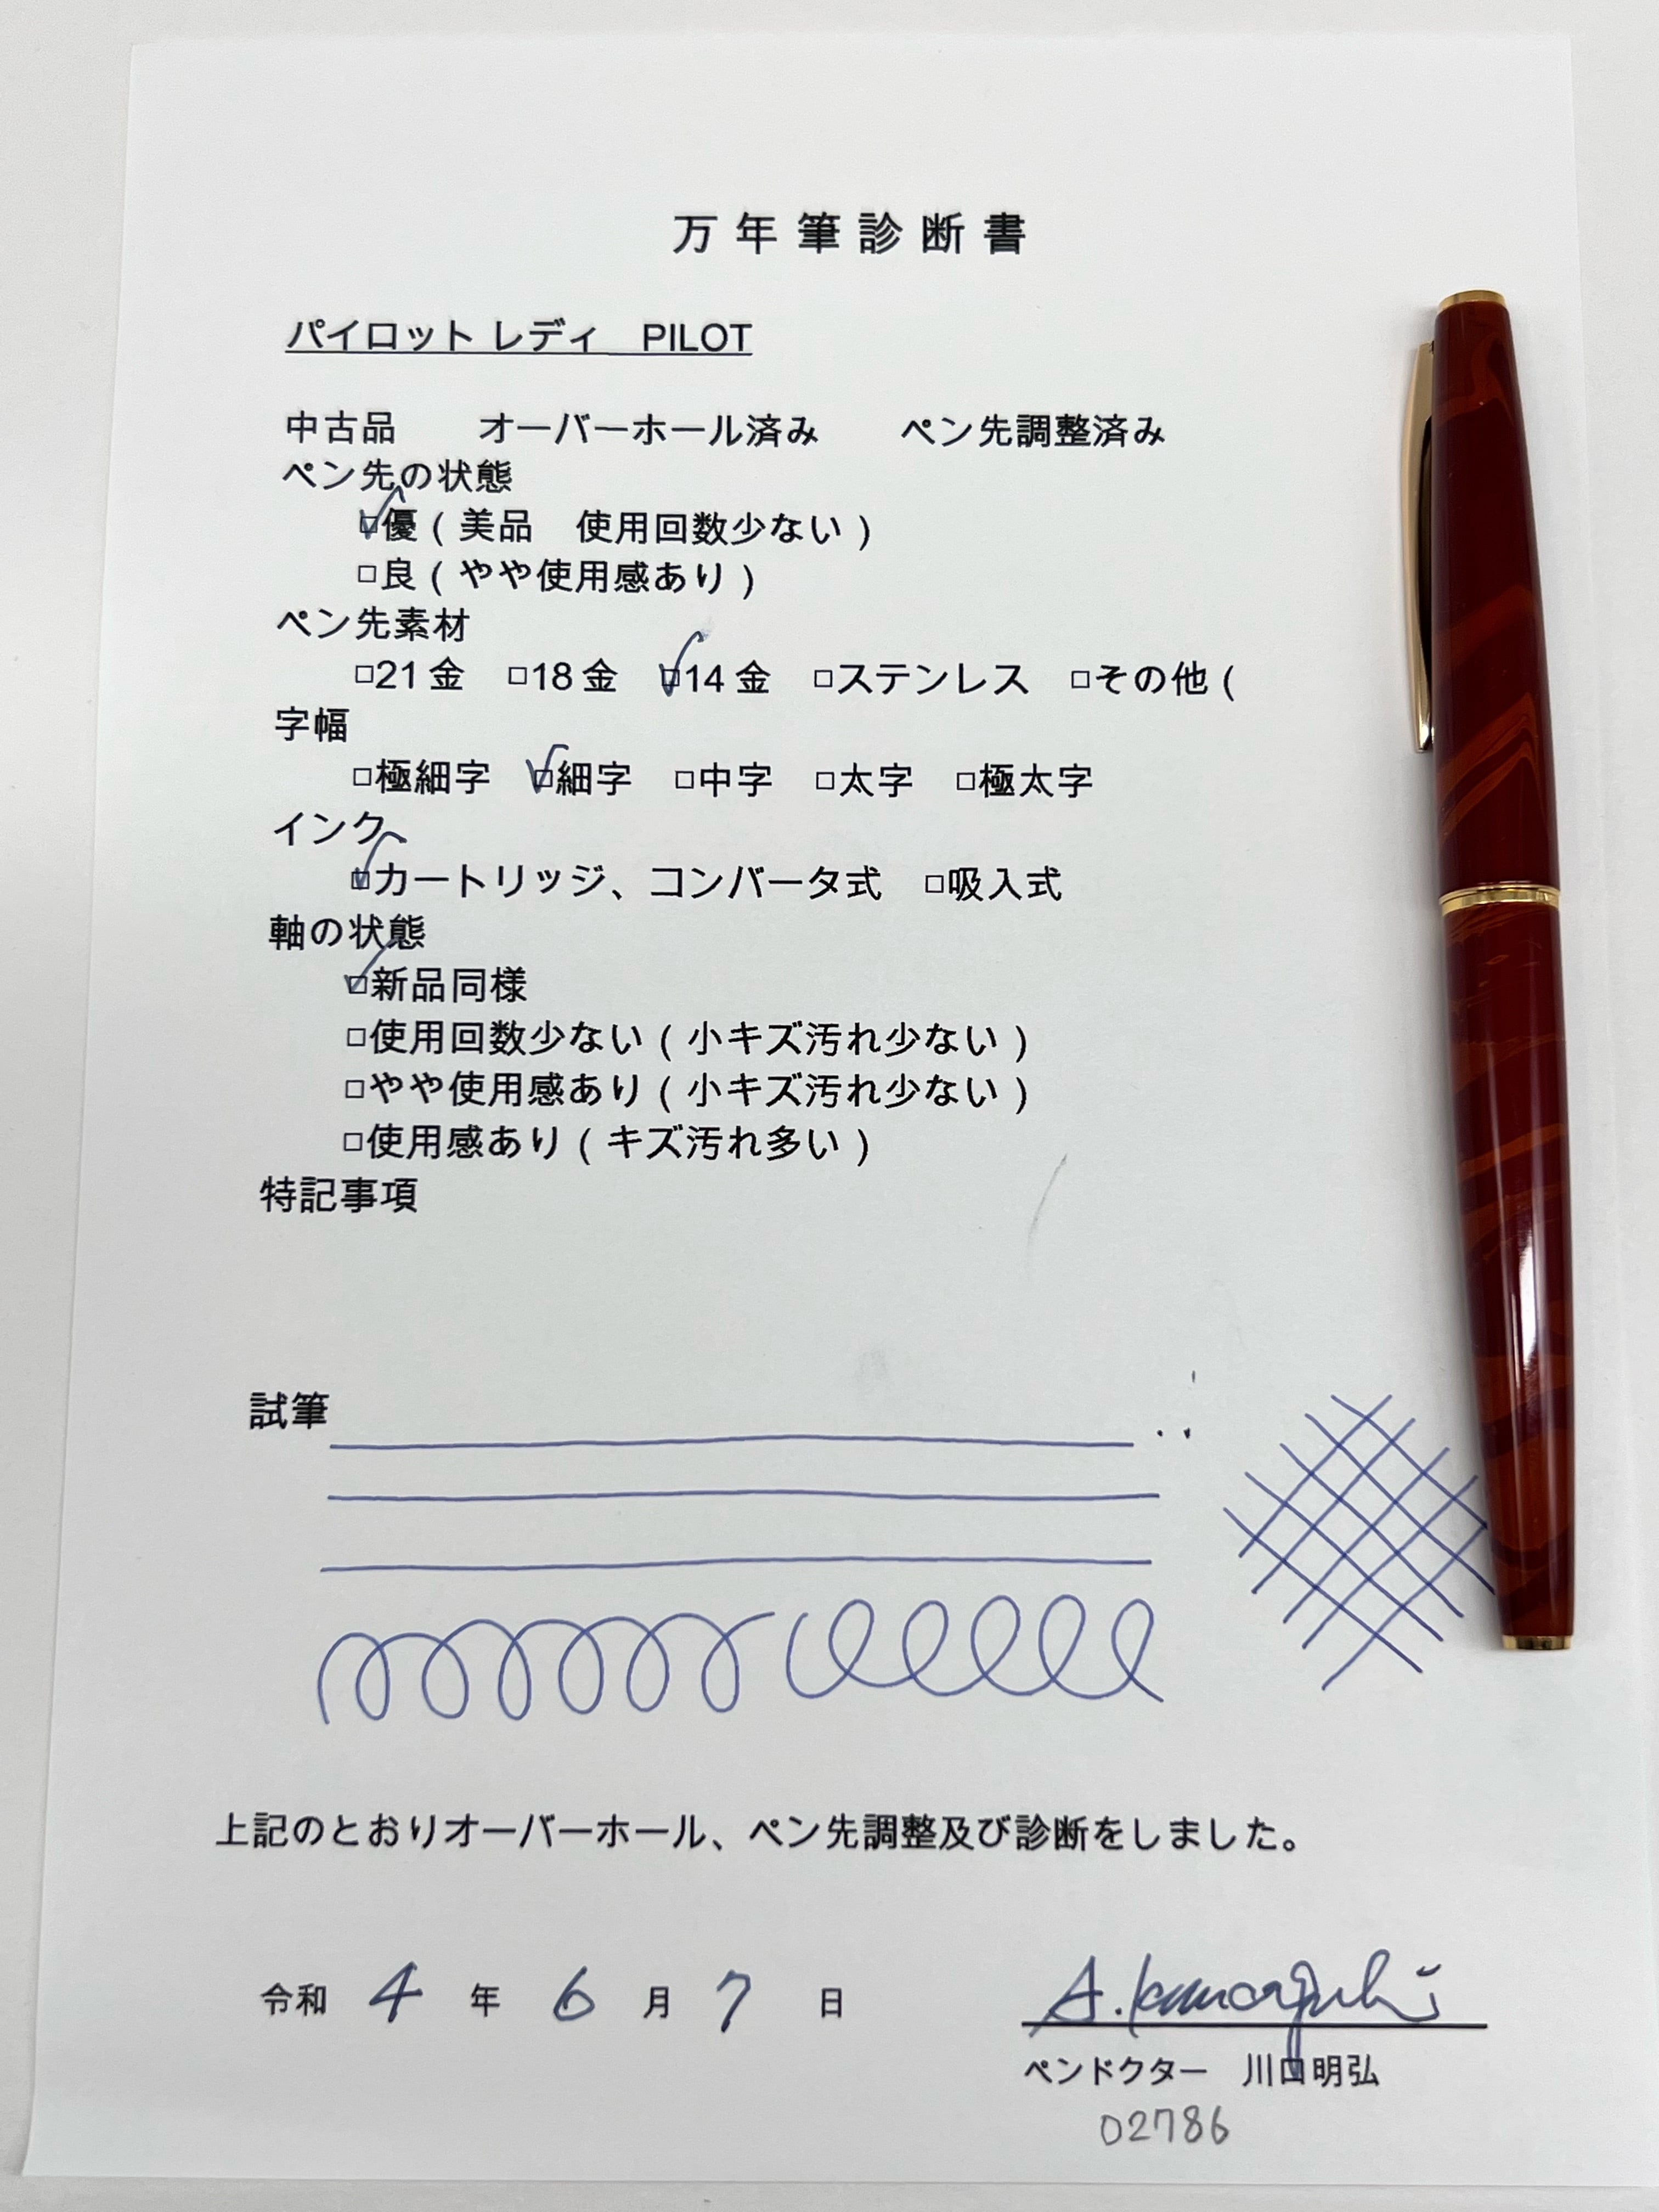 万年筆診断書
パイロット レディ　PILOT
中古品　　オーバーホール済み　　ペン先調整済み
ペン先の状態
☑優（美品　使用回数少ない）
□良（やや使用感あり）
ペン先素材
□21金　□18金　☑14金　□ステンレス　□その他（
字幅
□極細字　☑細字　□中字　□太字　□極太字
インク
☑カートリッジ、コンバータ式　□吸入式
軸の状態
☑新品同様
□使用回数少ない（小キズ汚れ少ない）
□やや使用感あり（小キズ汚れ少ない）
□使用感あり（キズ汚れ多い）
特記事項
試筆
上記のとおりオーバーホール、ペン先調整及び診断をしました。
令和 4 年 6 月 7 日
A. Kawaguchi
ペンドクター　川口明弘
02786